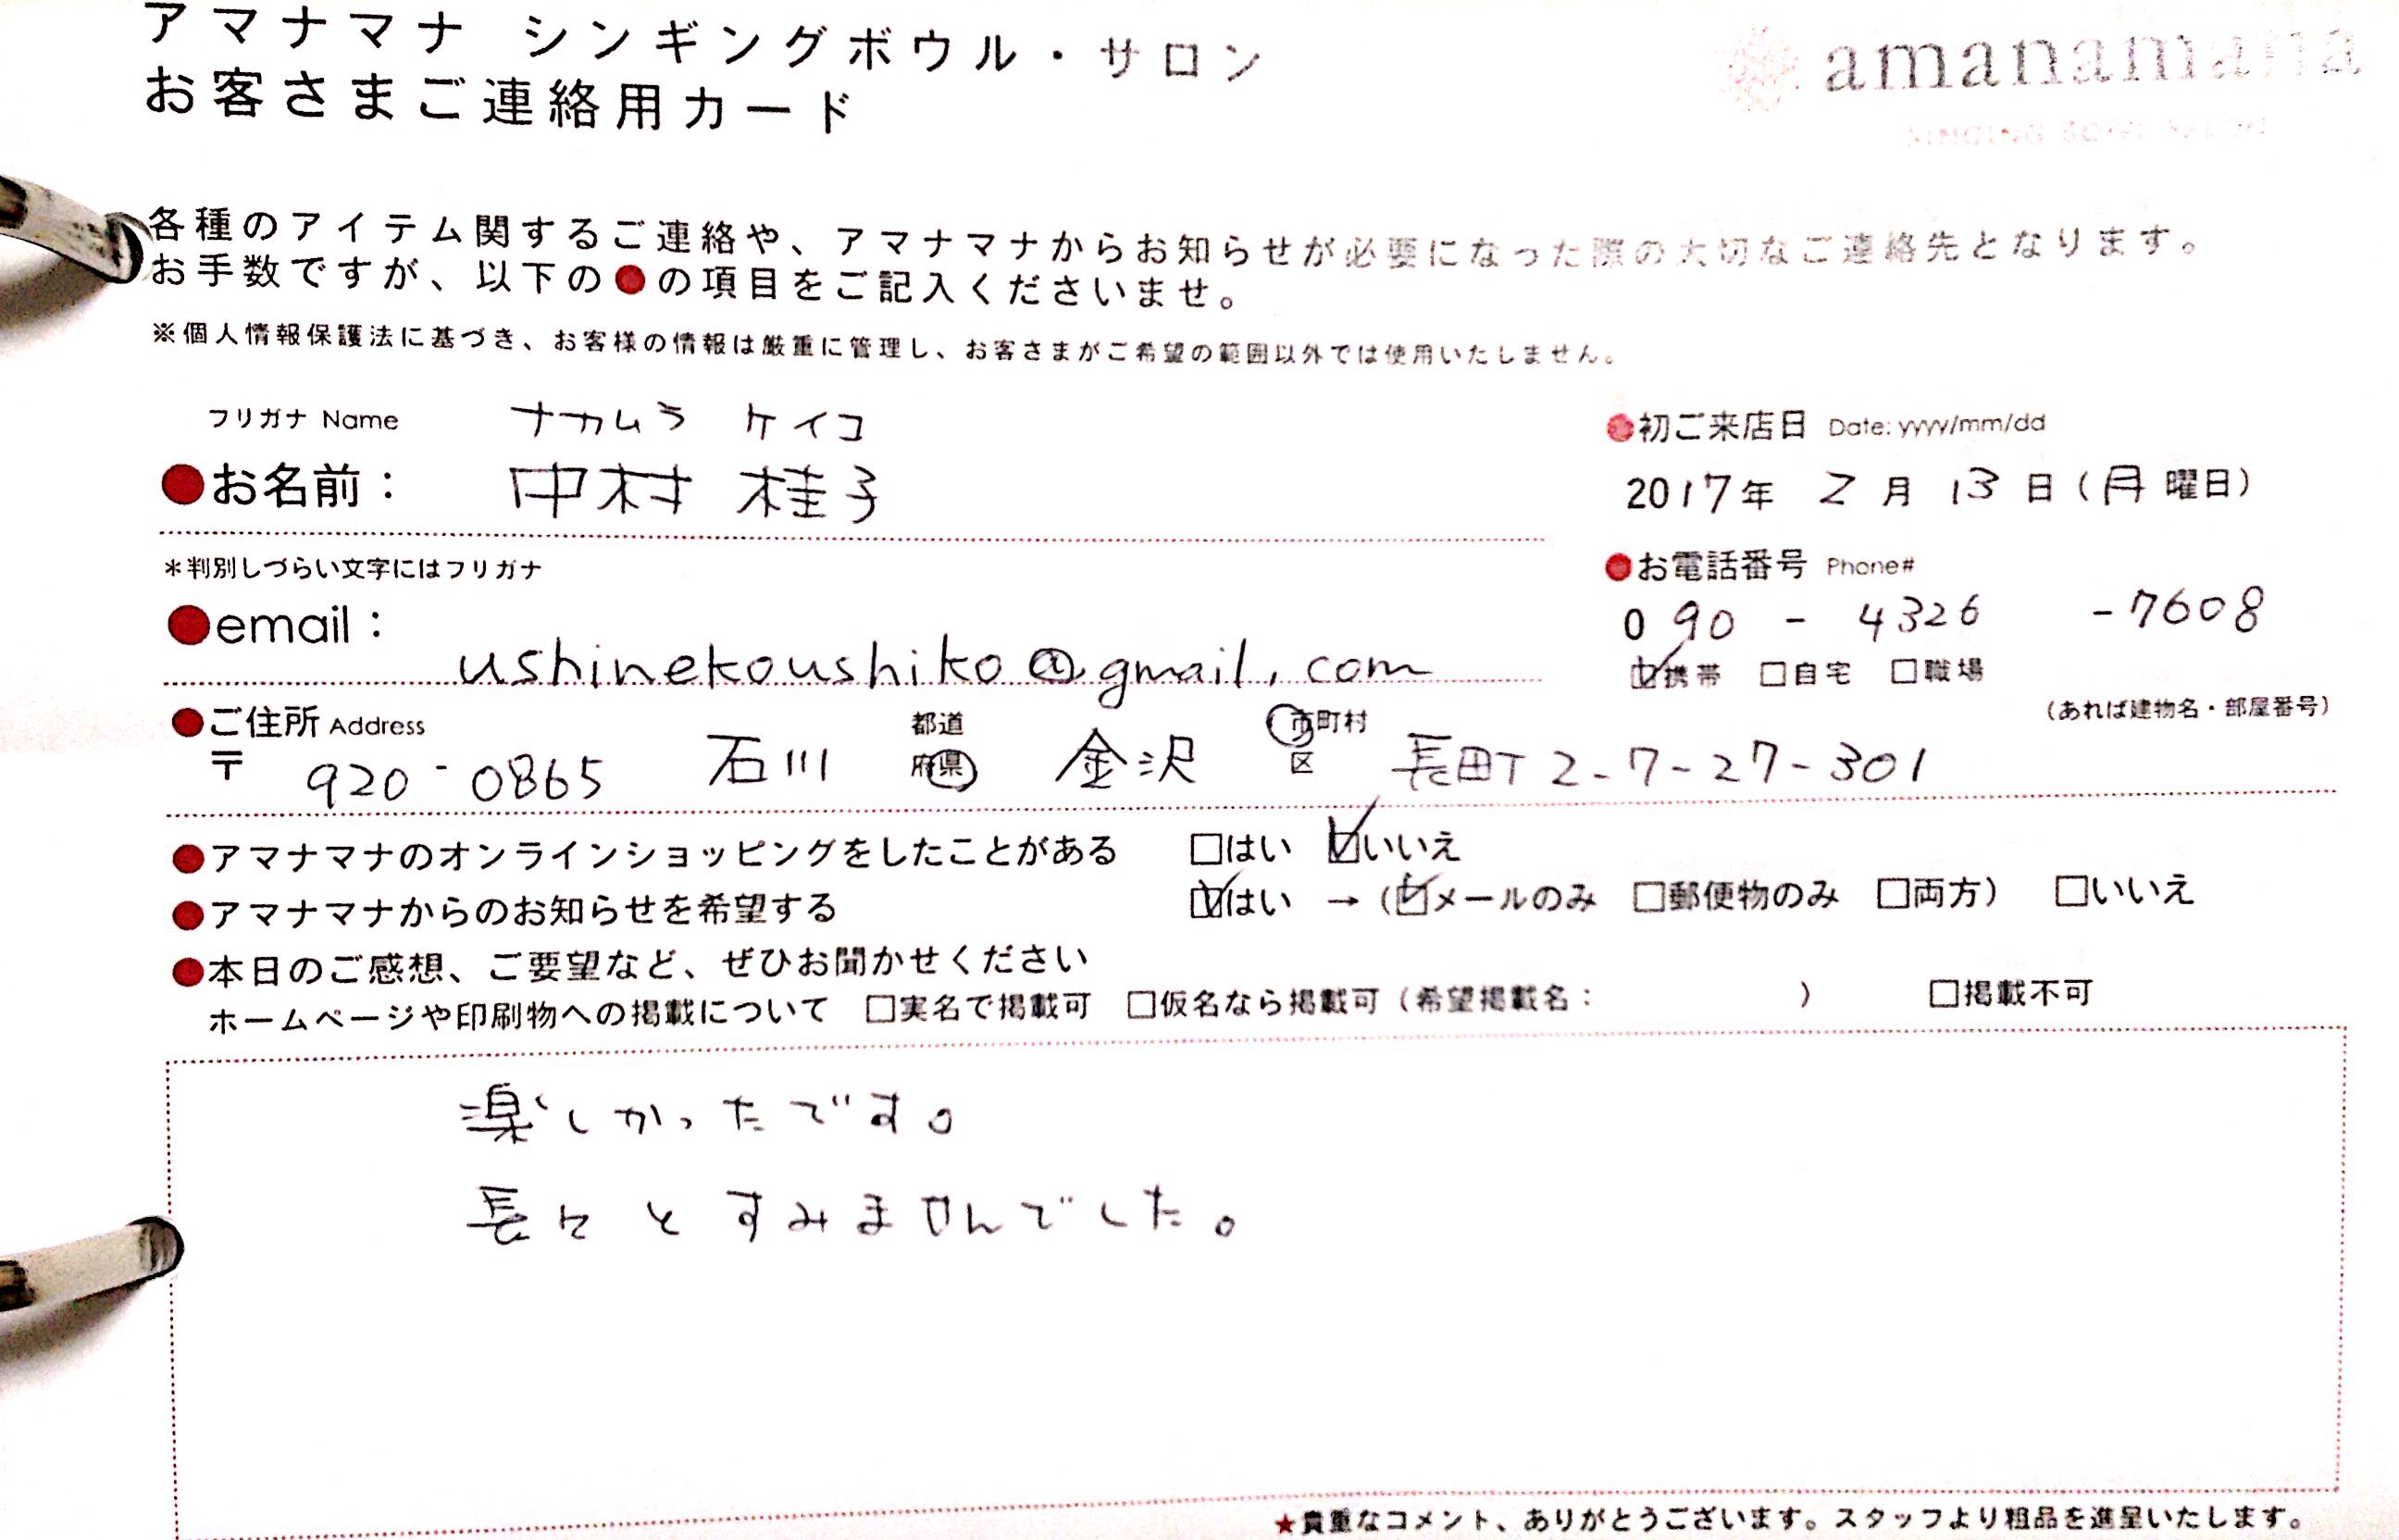 アマナマナ シンギングボウル・サロン
お客さまご連絡用カード
amanamana
SINGING BOWL SALON
各種のアイテム関するご連絡や、アマナマナからお知らせが必要になった際の大切なご連絡先となります。
お手数ですが、以下の●の項目をご記入くださいませ。
※個人情報保護法に基づき、お客様の情報は厳重に管理し、お客さまがご希望の範囲以外では使用いたしません。
フリガナ Name ナカムラ ケイコ
●お名前: 中村 桂子
●初ご来店日 Date: yyyy/mm/dd
2017年 2月 13日(月曜日)
*判別しづらい文字にはフリガナ
●email: ushinekoushiko@gmail.com
●お電話番号 Phone#
090 - 4326 - 7608
☑携帯 □自宅 □職場
●ご住所 Address 都道 市町村 (あれば建物名・部屋番号)
〒 920-0865 石川 府県 金沢 区 長田T 2-7-27-301
●アマナマナのオンラインショッピングをしたことがある □はい ☑いいえ
●アマナマナからのお知らせを希望する ☑はい → (☑メールのみ □郵便物のみ □両方) □いいえ
●本日のご感想、ご要望など、ぜひお聞かせください
ホームページや印刷物への掲載について □実名で掲載可 □仮名なら掲載可(希望掲載名: ) □掲載不可
楽しかったです。
長々とすみませんでした。
★貴重なコメント、ありがとうございます。スタッフより粗品を進呈いたします。